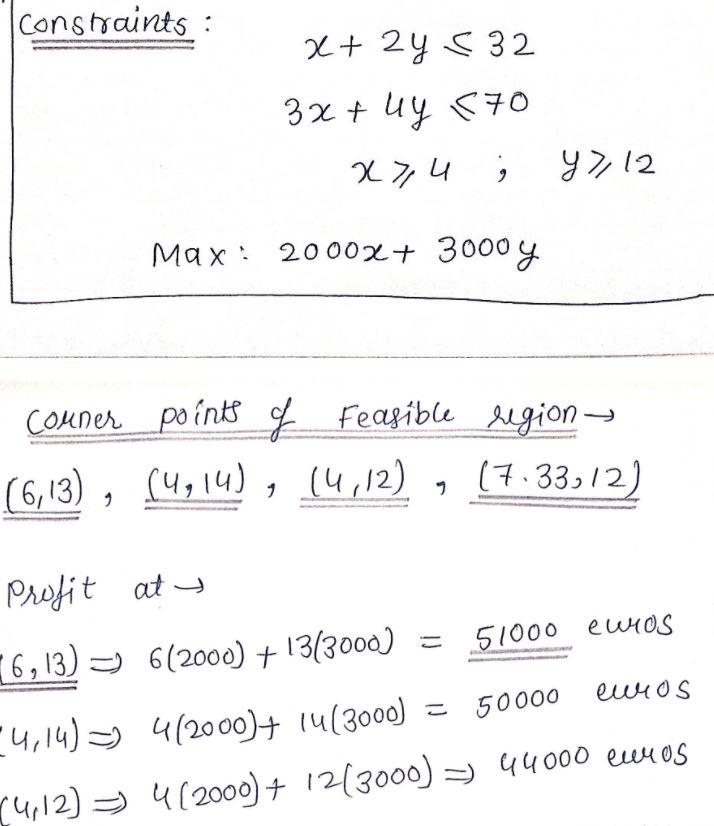 Constraints :
x + 2y ⩽ 32
3x + 4y ⩽ 70
x ⩾ 4 ; y ⩾ 12
Max : 2000x + 3000y
Corner points of Feasible region →
(6,13) , (4,14) , (4,12) , (7.33,12)
Profit at →
(6,13) ⇒ 6(2000) + 13(3000) = 51000 euros
(4,14) ⇒ 4(2000) + 14(3000) = 50000 euros
(4,12) ⇒ 4(2000) + 12(3000) ⇒ 44000 euros